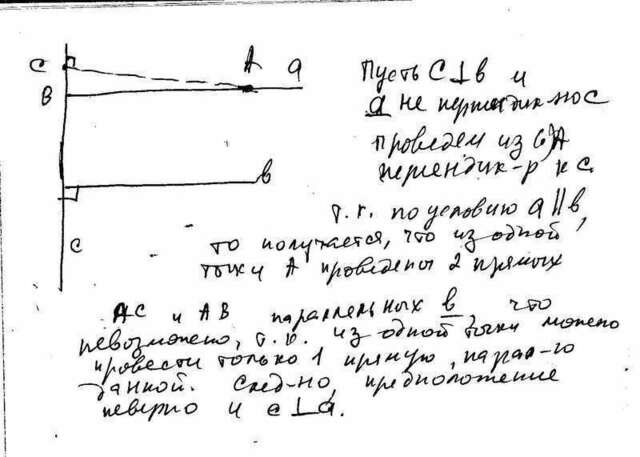 C
A
a
B
в
c
Пусть C⊥в и
a не перпендик-но C
Проведем из (·)A
перпендик-р к C.
Т.к. по условию a||в,
то получается, что из одной
точки A проведены 2 прямых
AC и AB параллельных в, что
невозможно, т.к. из одной точки можно
провести только 1 прямую, парал-ю
данной. След-но, предположение
неверно и c⊥a.